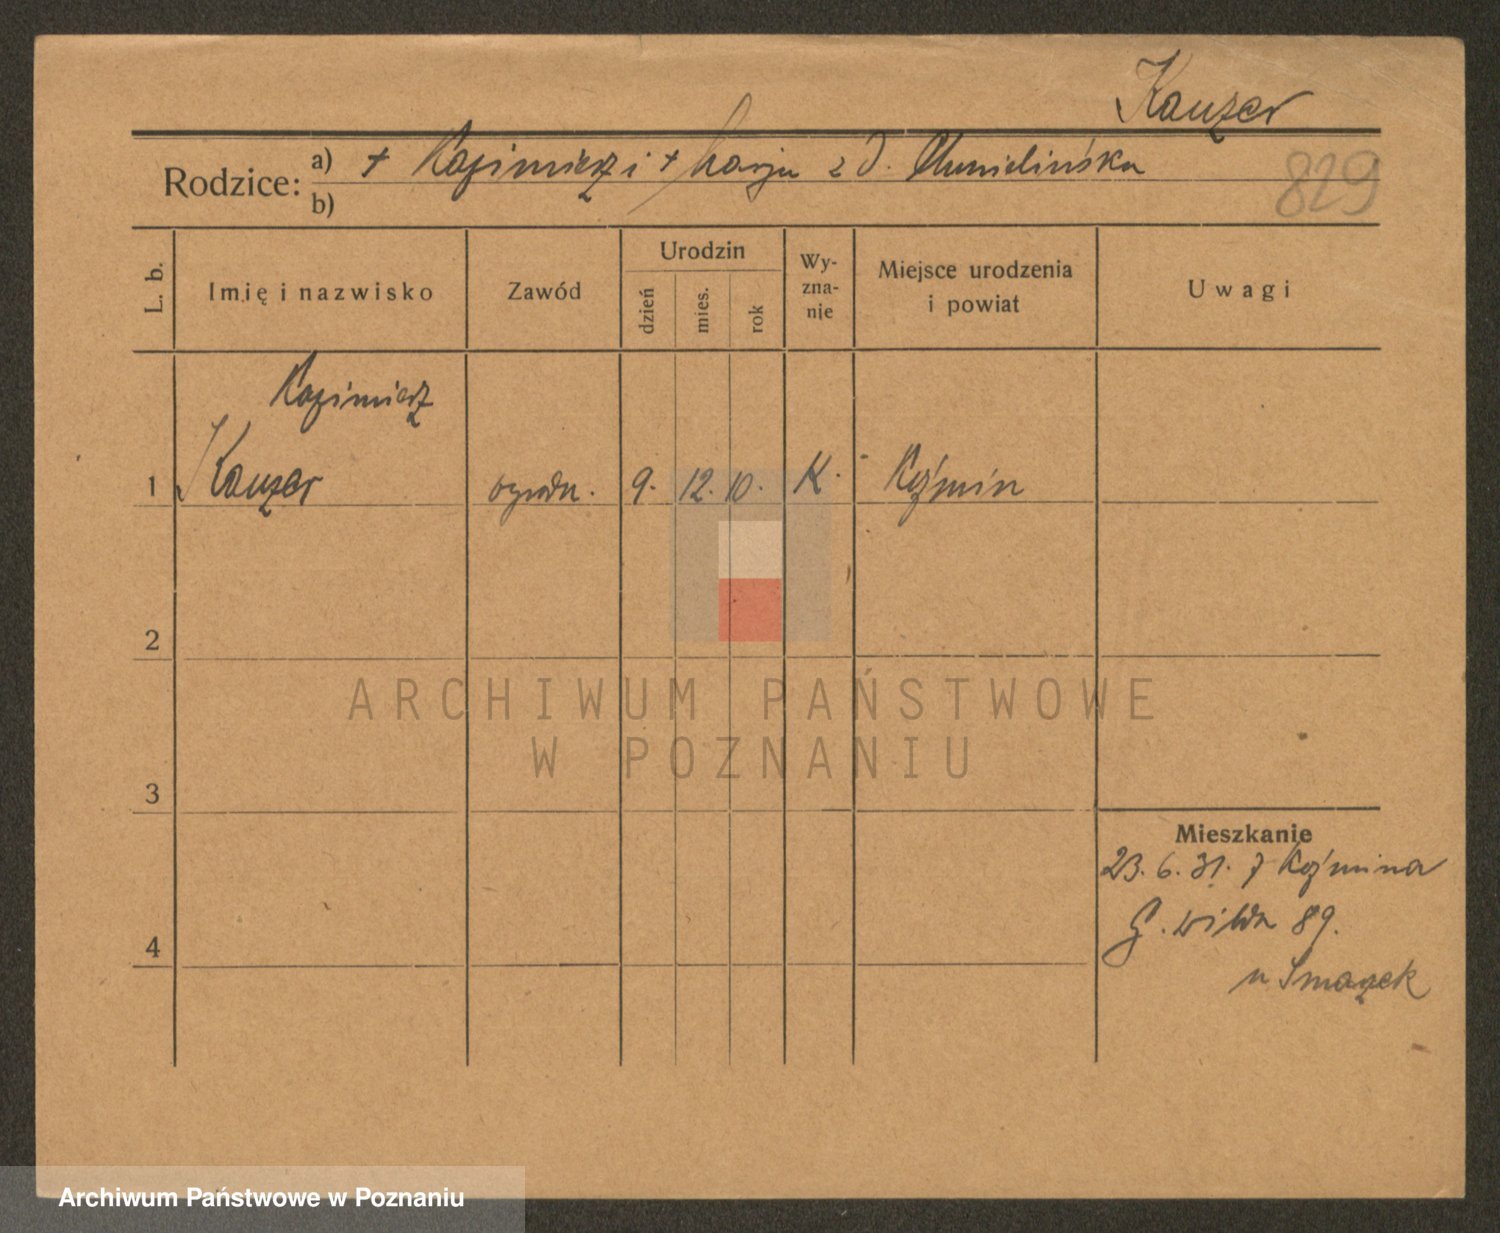 Kauzer
Rodzice: a) + Kazimierz i + Marja z d. Chmielińska
829
b)
L. b. Imię i nazwisko Zawód Urodzin dzień mies. rok Wy-zna-nie Miejsce urodzenia i powiat Uwagi
Kazimierz
1 Kauzer ogrodn. 9. 12. 10. K. Koźmin
2
ARCHIWUM PAŃSTWOWE
W POZNANIU
3
Mieszkanie
23. 6. 31. z Koźmina
G. Wilda 89.
4
u Smaczek
Archiwum Państwowe w Poznaniu